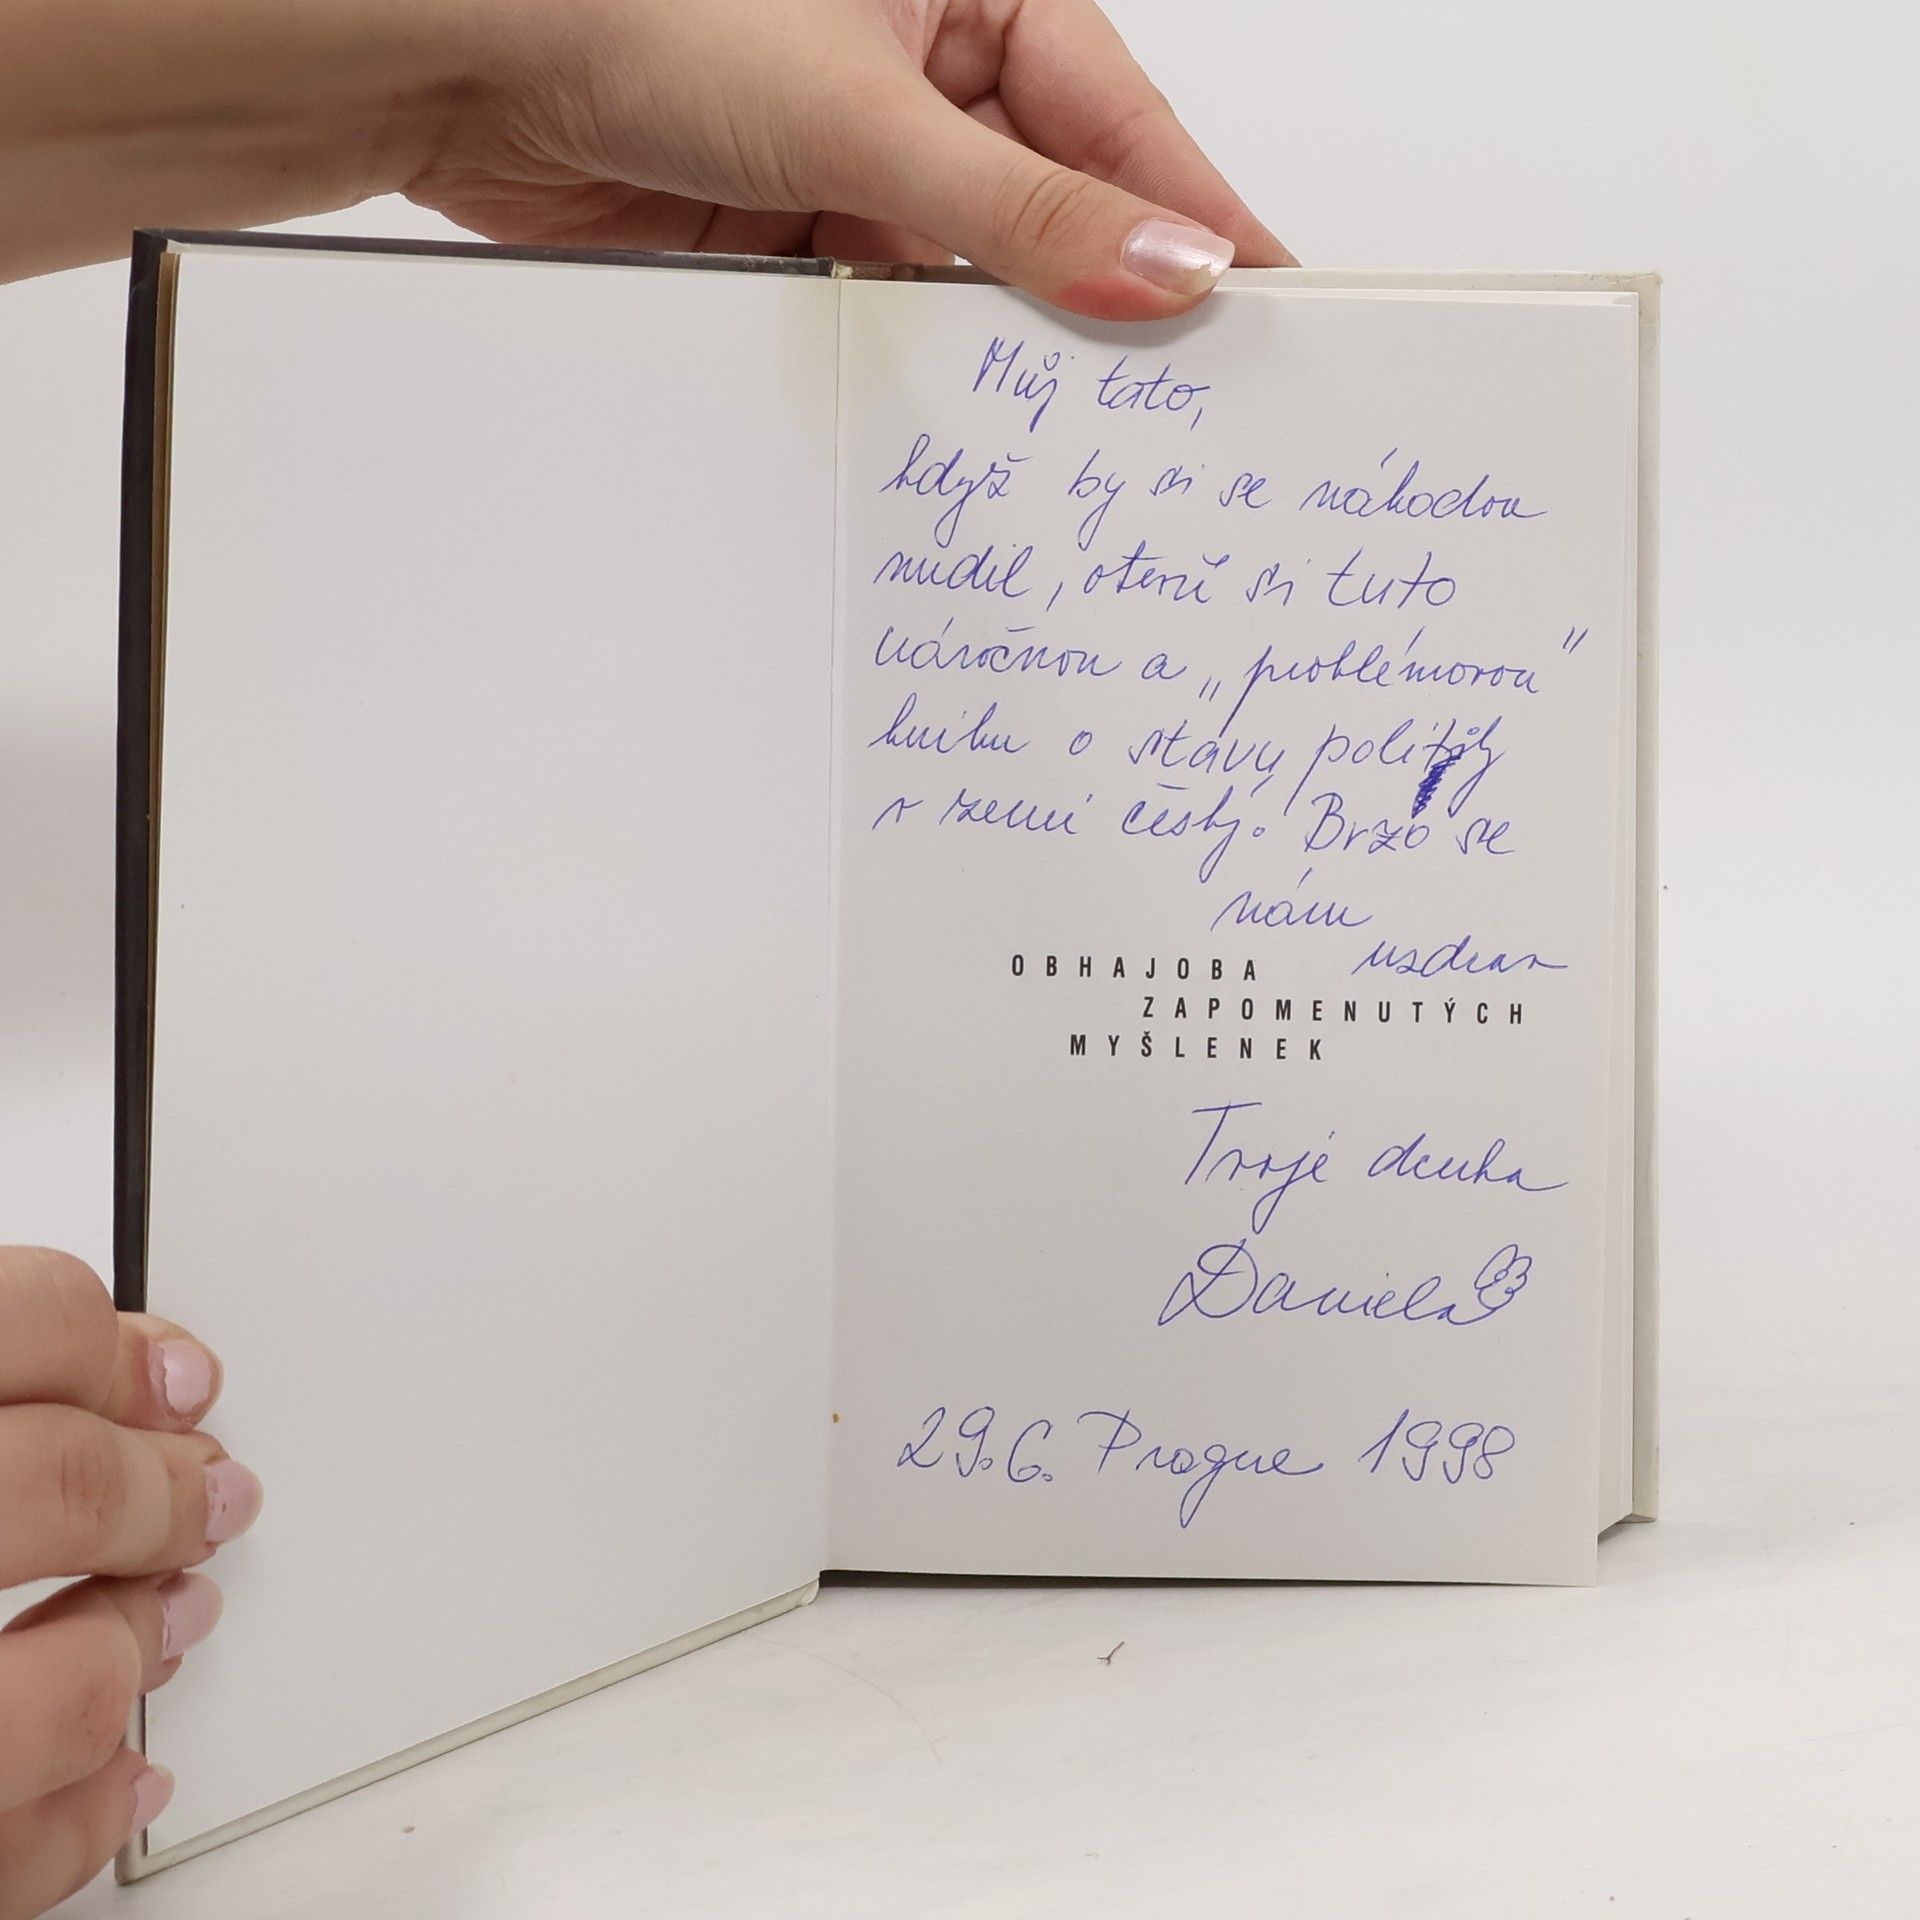 Můj tato,
když by si se náhodou
nudil, otevři si tuto
náročnou a „problémovou"
knihu o stavu politiky
v zemi český. Brzo se
nám
uzdrav
OBHAJOBA
ZAPOMENUTÝCH
MYŠLENEK
Tvojé
Daniela
29.6. Prague 1998